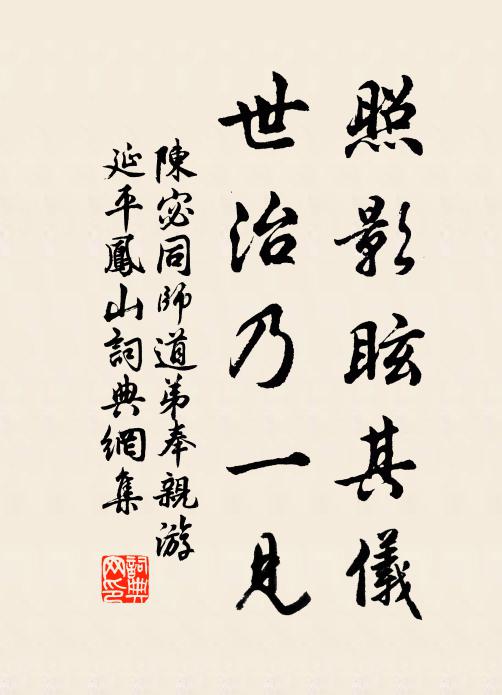 照影眩其儀
世治乃一見
陳宓同師道弟奉親游
延平鳳山詞典網集
詞典網印